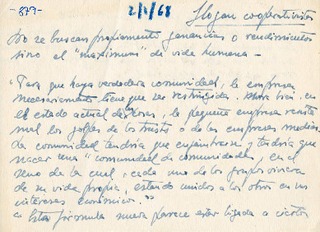 -879-
2/1/68
Slogan cooperativista
No se buscan propiamente ganancias o rendimientos
sino el "maximum" de vida humana -
"Para que haya verdadera comunidad, la empresa
necesariamente tiene que ser restringida. Ahora bien, en
el estado actual de cosas, la pequeña empresa resiste
mal los golpes de los trusts o de las empresas medias.
La comunidad tendría que enjambrarse y tendría que
nacer una "comunidad de comunidades", en el
seno de la cual, cada uno de los grupos viviera
de su vida propia, estando unidos a los otros en sus
intereses económicos."
Esta fórmula nueva parece estar ligada a ciertos